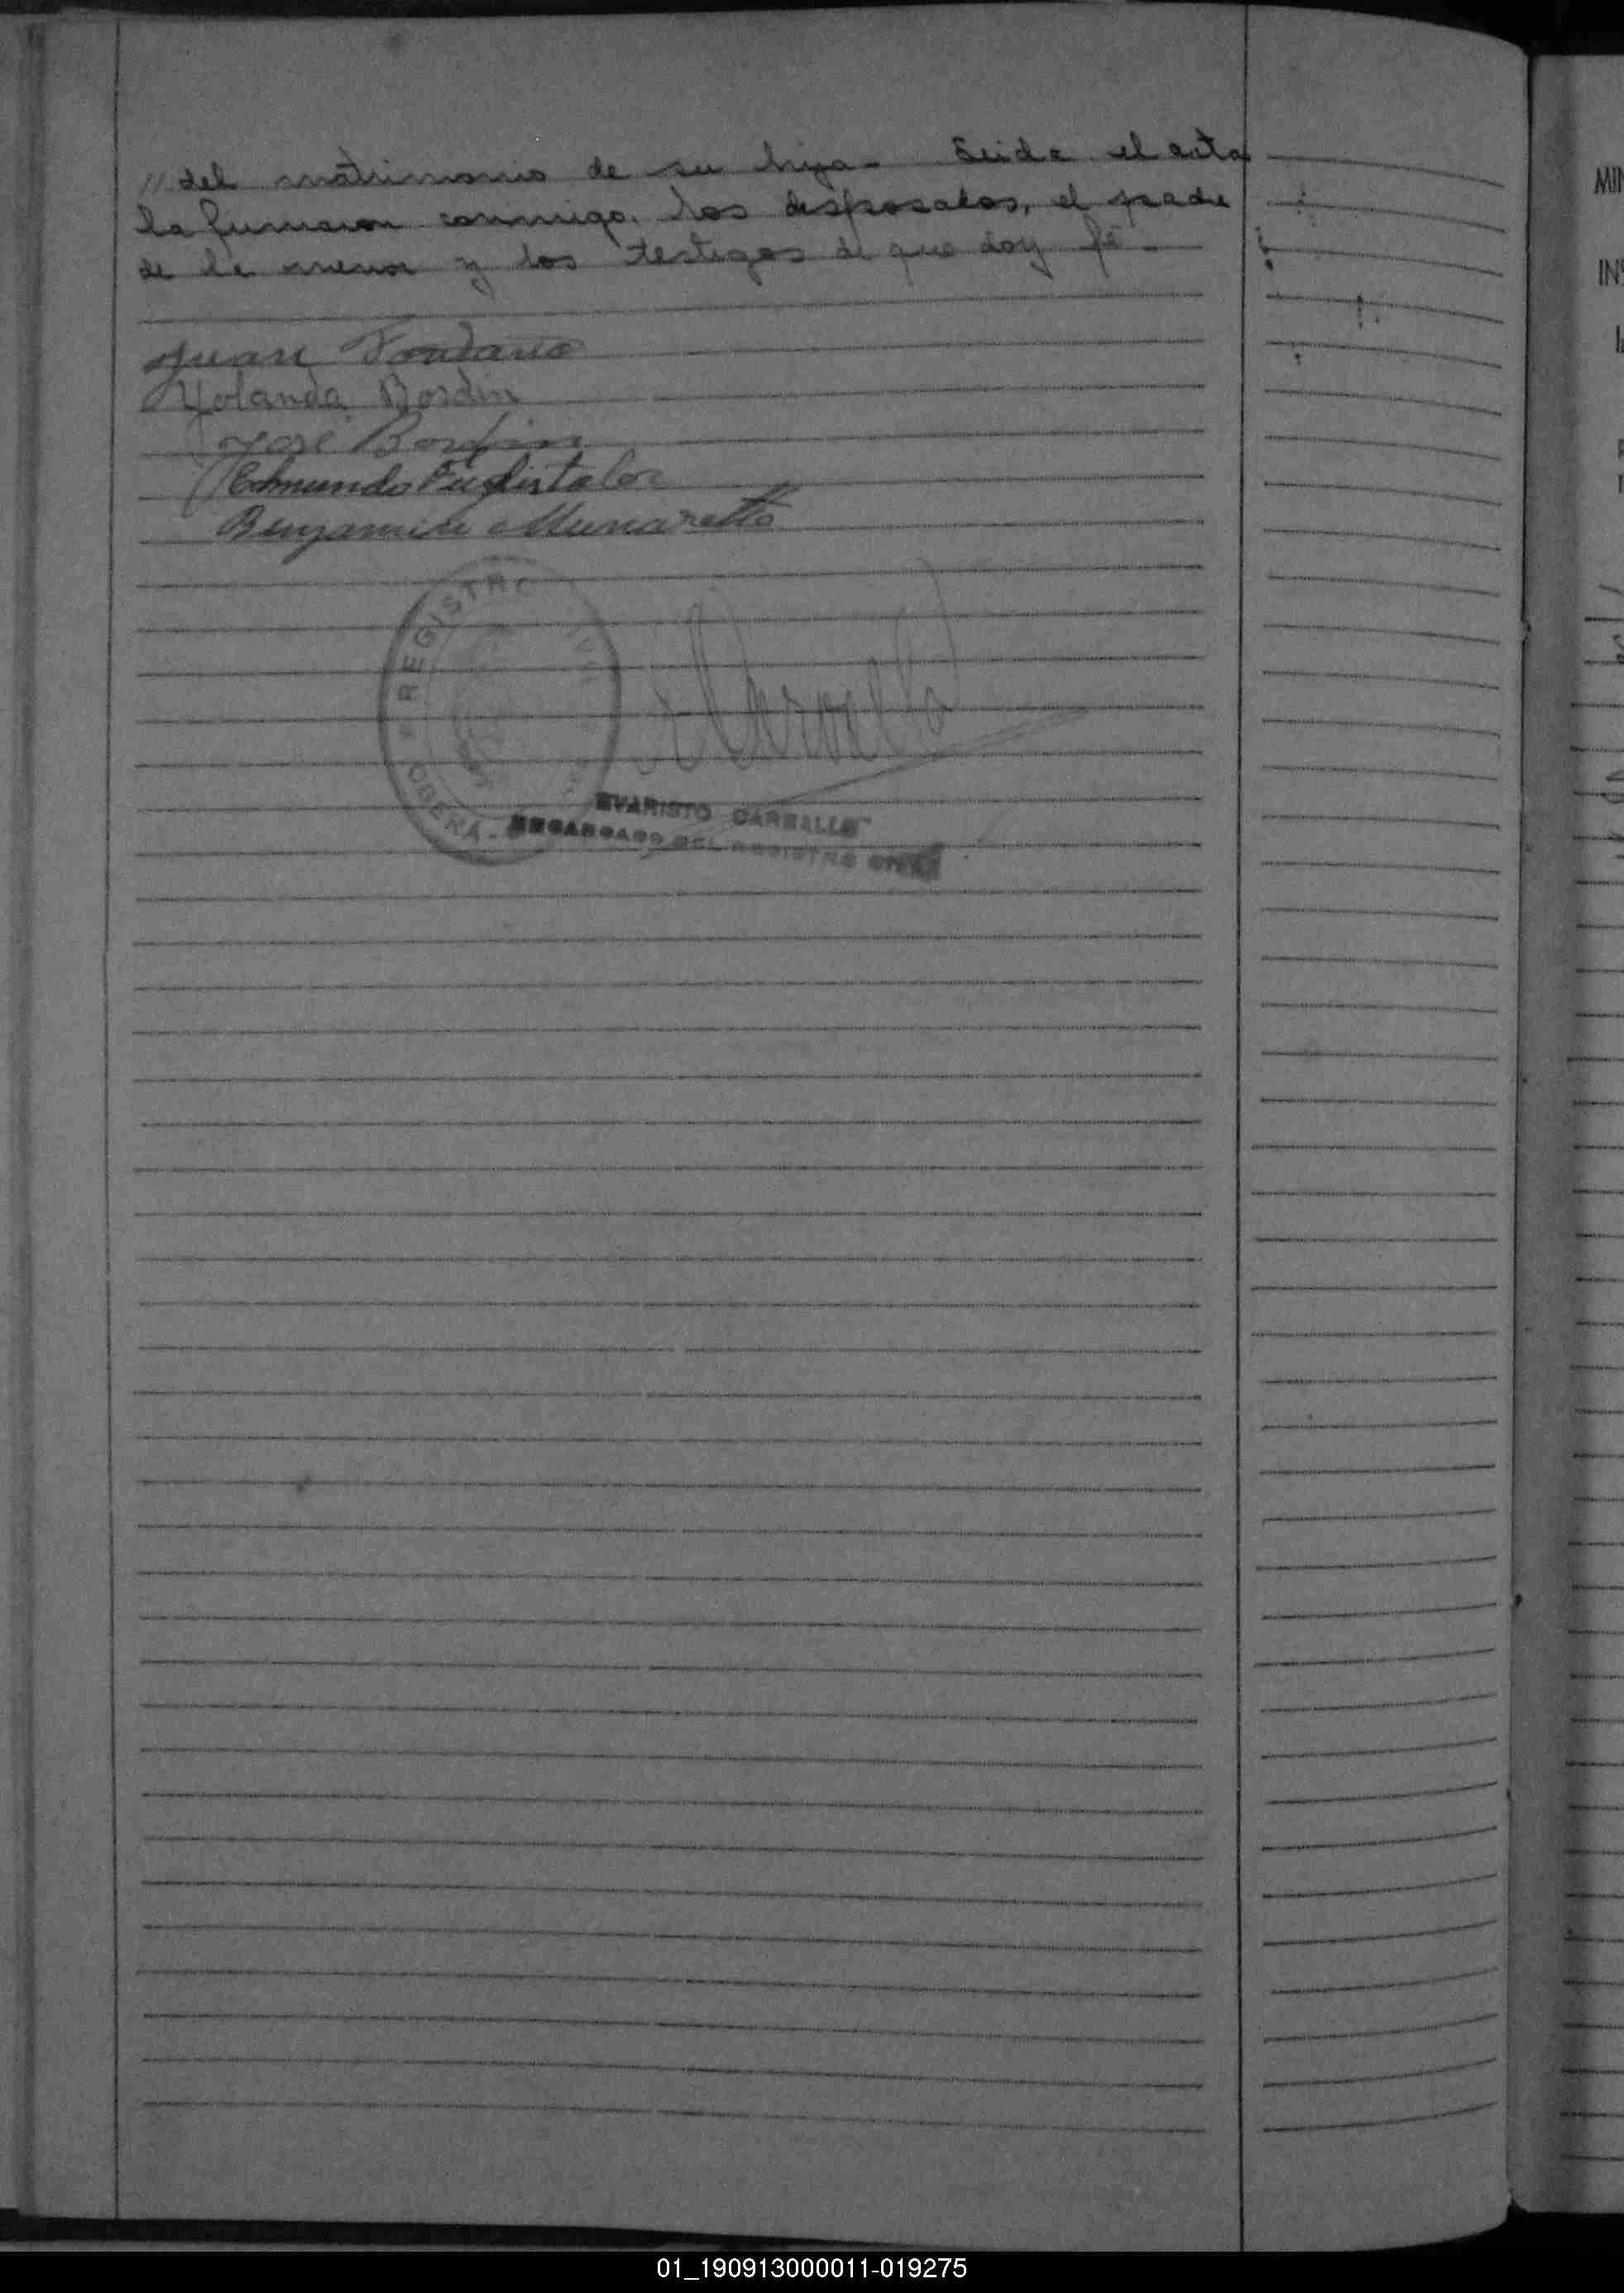 // del matrimonio de su hija - Leida el acta
la firmaron conmigo, los desposados, el padre
de la menor y los testigos de que doy fé -
Juan
Yolanda Bordin
José Bordin
Edmundo
Benjamin Munaretto
REGISTRO CIVIL
OBERA
EVARISTO CARBALLO
ENCARGADO DEL REGISTRO CIVIL
MIN
INS
01_190913000011-019275